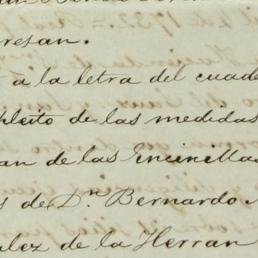 resan.
á la letra del cuad
pleito de las medidas
an de las Encinillas
s de Dn. Bernardo
alez de la Herran